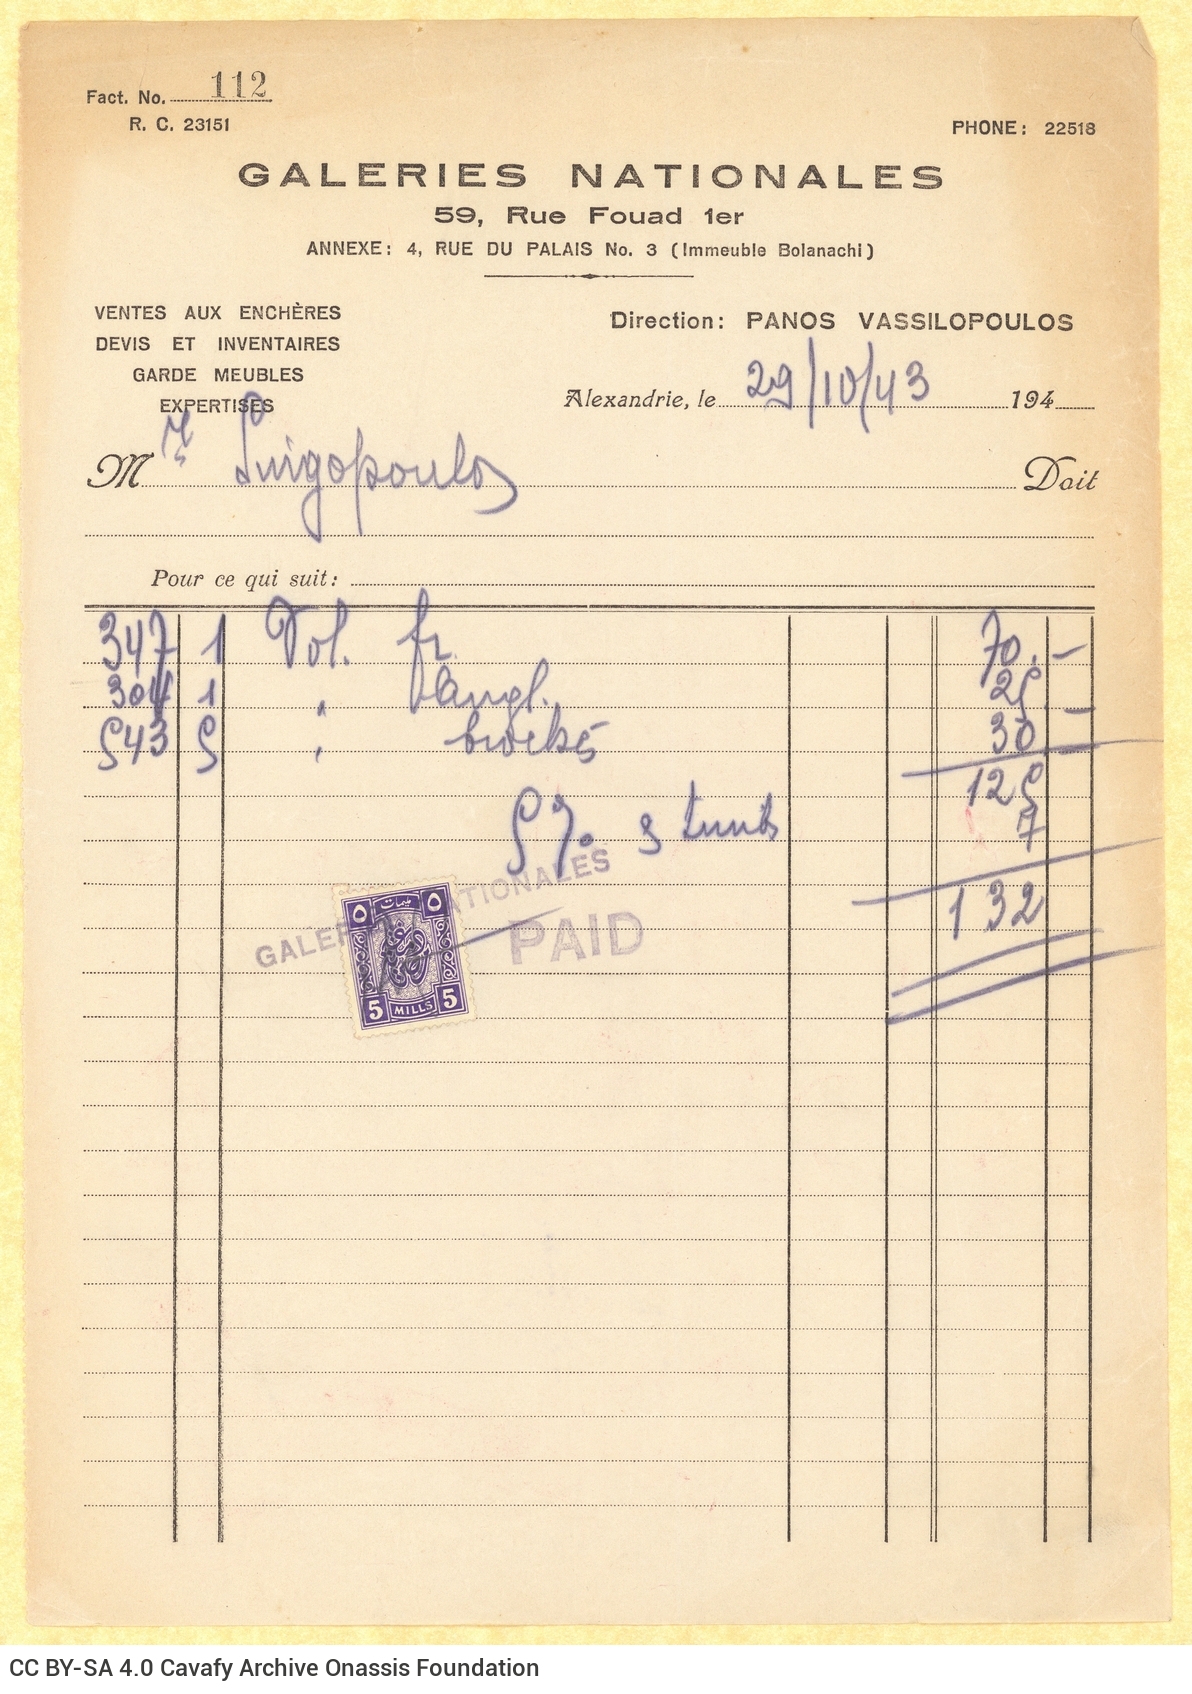 Fact. No. 112
R. C. 23151
PHONE: 22518
GALERIES NATIONALES
59, Rue Fouad 1er
ANNEXE: 4, RUE DU PALAIS No. 3 (Immeuble Bolanachi)
VENTES AUX ENCHÈRES
DEVIS ET INVENTAIRES
GARDE MEUBLES
EXPERTISES
Direction: PANOS VASSILOPOULOS
Alexandrie, le 29/10/43 194
Mr Singopoulos Doit
Pour ce qui suit:
347 1 Vol. fr. 70. —
304 1 " angl. 25
543 5 " brochés 30 —
125
5% 7
132
GALERIES NATIONALES
PAID
٥ مليمات ٥
5 MILLS 5
CC BY-SA 4.0 Cavafy Archive Onassis Foundation